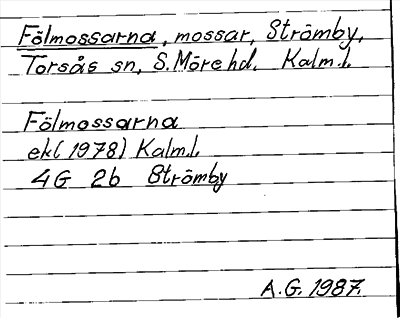 Fölmossarna, mossar, Strömby,
Torsås sn, S. Möre hd. Kalm.l.
Fölmossarna
ek(1978) Kalm.l.
4G 2b Strömby
A.G. 1987.